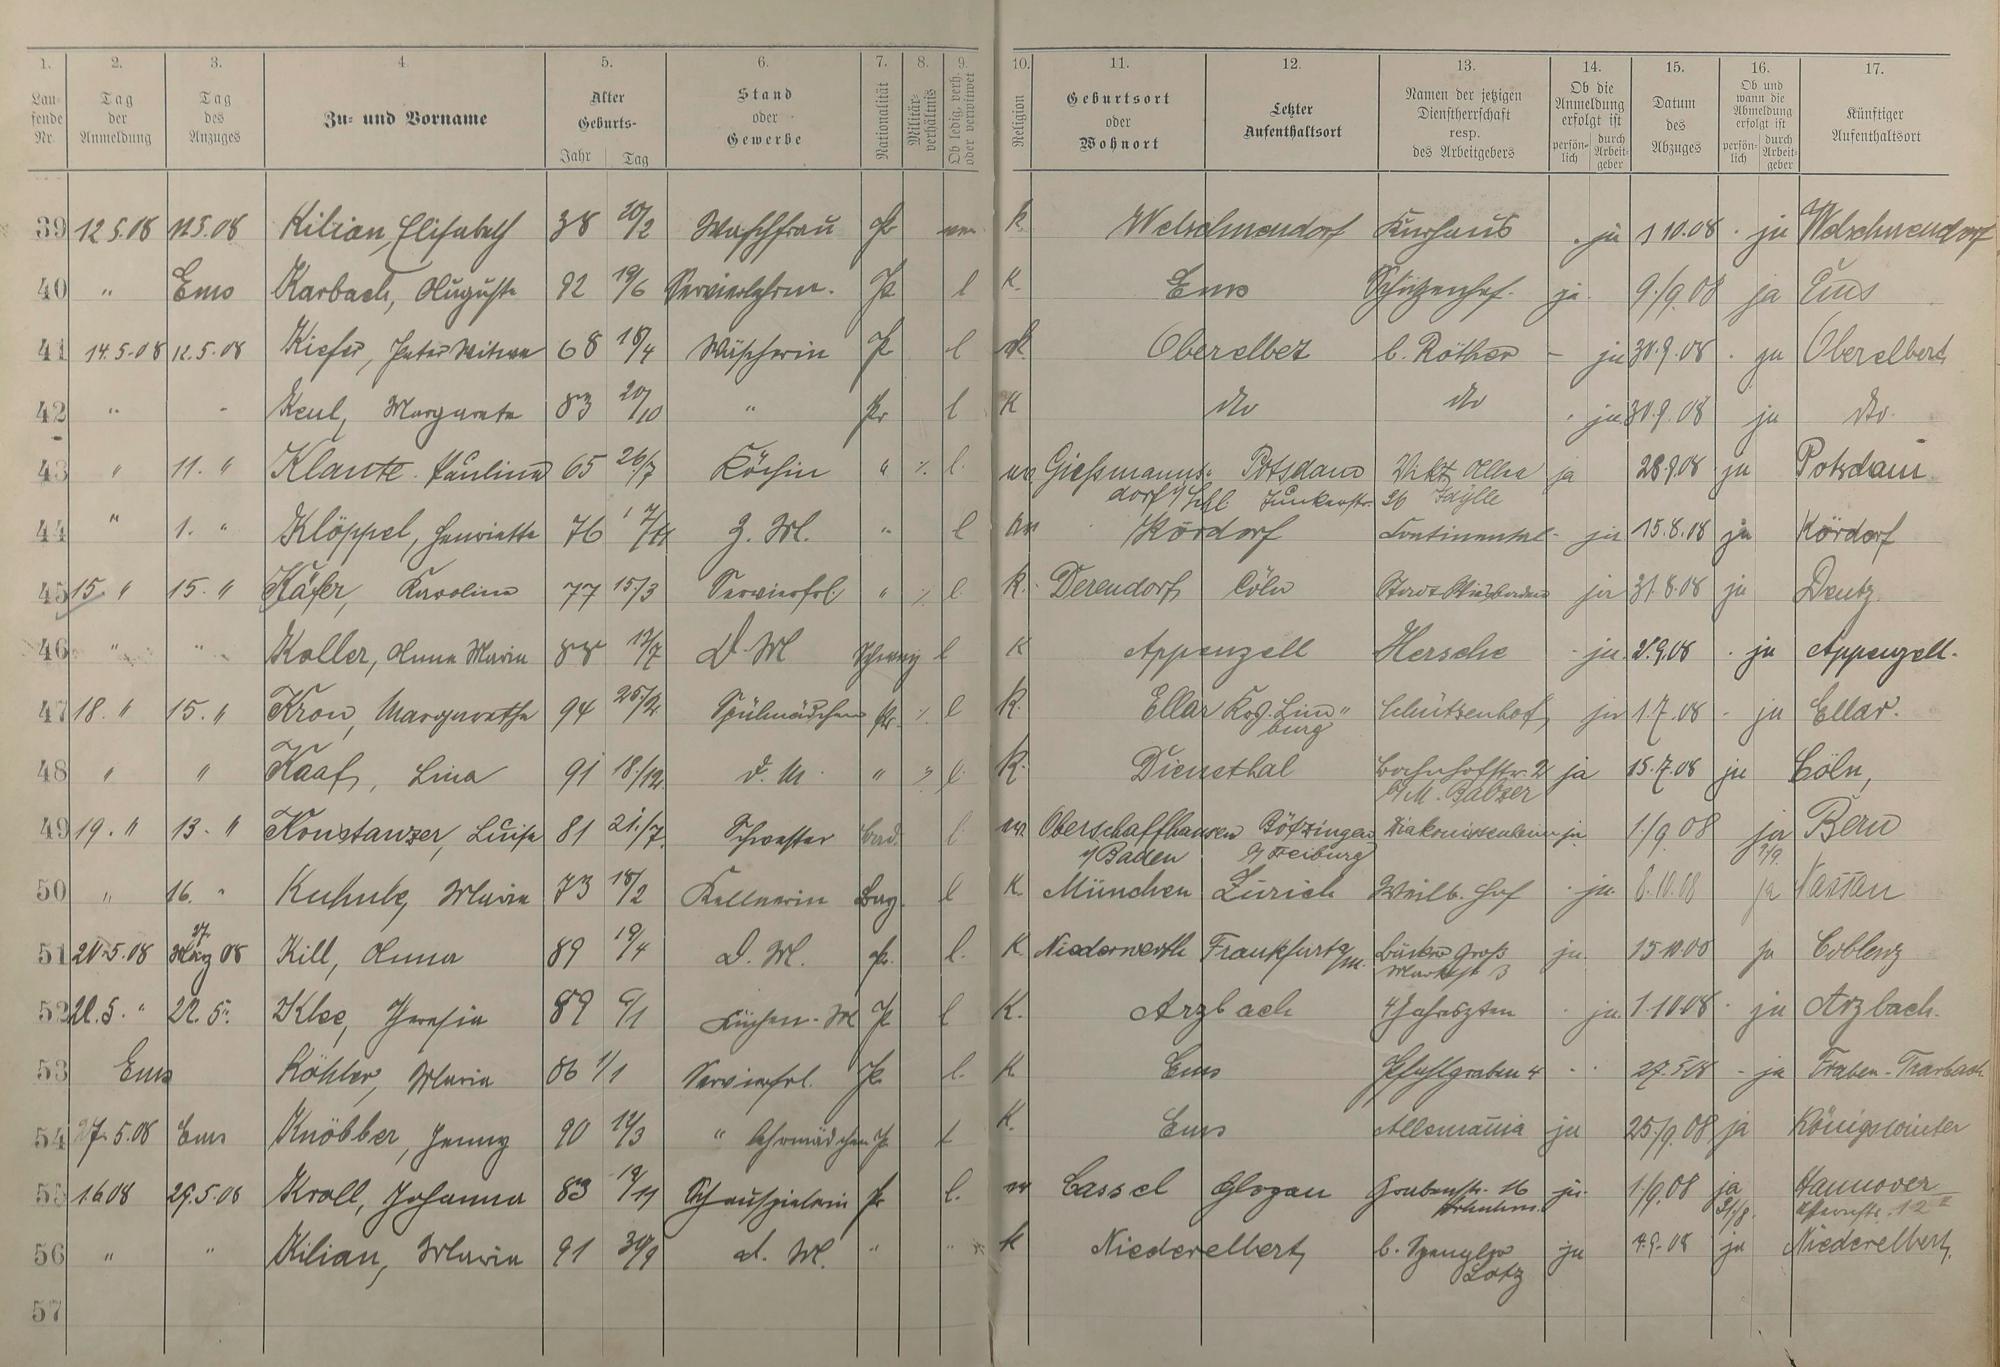 1. 2. 3. 4. 5. 6. 7. 8. 9. 10. 11. 12. 13. 14. 15. 16. 17.
Laufende Nr. Tag der Anmeldung Tag des Anzuges Zu- und Vorname Alter Geburts- Jahr Tag Stand oder Gewerbe Nationalität Militär-verhältnis Ob ledig, verh. oder verwitwet Religion Geburtsort oder Wohnort Letzter Aufenthaltsort Namen der jetzigen Dienstherrschaft resp. des Arbeitgebers Ob die Anmeldung erfolgt ist persön-lich durch Arbeit-geber Datum des Abzuges Ob und wann die Abmeldung erfolgt ist persön-lich durch Arbeit-geber Künftiger Aufenthaltsort
39 12.5.08 12.5.08 Kilian, Elisabeth 38 20/2 Waschfrau Pr K. Welschneudorf Kurhaus . ja 1 10.08 . ja Welschneudorf
40 " Ems Karbach, Auguste 92 19/6 Pr l K. Ems Schützenhof. ja. 9./9.08 ja Ems
41 14.5.08 12.5.08 Kiefer, Peter Witwe 68 18/4 Wäscherin Pr l K. Oberelbet b. Röther - ja 30.9.08 . ja Oberelbert
42 " " Keul, Margareta 83 20/10 " Pr l K do do . ja 30.9.08 ja do.
43 " 11. " Klante Pauline 65 26/7 Köchin " ./. l. Giessmanns- Potsdam ja 28.9.08 ja Potsdam
dorf Junkerstr. 36 Idylle
44 " 1. " Klöppel, Henriette 76 Z. M. " l Kördorf Continental - ja 15.8.08 ja Kördorf
45 15. " 15. " Käfer, Karoline 77 15/3 Servierfrl. " ./. l. K. Derendorf Cöln Stadt Wiesbaden ja 31.8.08 ja Deutz.
46 " " Koller, Anna Maria 88 D. M Schweiz l K Appenzell Hersche - ja. . ja Appenzell.
47 18. " 15. " Kron, Margarethe 94 25/2 Spülmädchen Pr. ./. l K. Ellar Krs. Lim- Schützenhof ja 1.7.08 - ja Ellar.
burg
48 " " Kaaf, Lina 91 18./12. d. M. " ./. l. K. Dienethal Bahnhofstr. 2 ja 15.7.08 ja Cöln,
Balzer
49 19. " 13. " Konstanzer, Luise 81 21./7. Schwester Bad. l Oberschaffhausen Bötzingen Diakonissenheim ja 1./9.08 ja Bern
i/Baden b/Freiburg
50 " 16. " Maria 73 18/2 Kellnerin Bay. l K. München Zürich Weilb. Hof . ja. 8.10.08 ja Nassau
51 08 Kill, Anna 89 19/4 D. M. Pr. l. K Niederwerth Frankfurt a/M. Groß ja. ja Coblenz
Marktstr 3
52 22.5. " 22.5. Klee, Theresia 89 6/1 Küchen-M Pr l K. Arzbach 4 Jahreszten . ja. 1.10.08 . ja Arzbach.
53 Ems Köhler, Maria 86 1/1 Servierfrl. Pr. l. K Ems Pfahlgraben 4 - . 27.5.08 - ja Traben-Trarbach
54 27.5.08 Ems Knöbber, Jenny 90 12/3 " Lehrmädchen Pr l K. Ems Allemania ja 25/9.08 ja Königswinter
55 1.6.08 29.5.08 Kroll, Johanna 83 Schauspielerin Pr l. Cassel Glogau Grabenstr. 16 ja. 1/9.08 ja Hannover
56 " " Kilian, Maria 91 30/9 d. M. " " K Niederelbert b. Spengler ja 4.9.08 ja Niederelbert.
Lotz
57